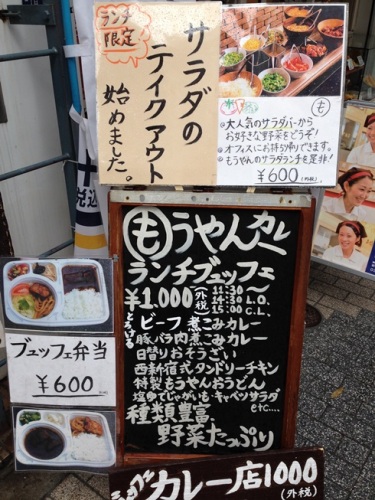 ランチ
限定
サラダの
テイクアウト
始めました。
も
大人気のサラダバーから
お好きな野菜をどうぞ!
オフィスにお持ち帰りできます。
もうやんのサラダランチを是非!
¥600
税込
もうやんカレー
ランチブュッフェ
¥1.000(外税)
11:30〜
14:30 L.O.
15:00 C.L.
とろける
ビーフ煮こみカレー
豚バラ肉煮こみカレー
日替りおそうざい
西新宿式タンドリーチキン
特製もうやんおうどん
塩ゆでじゃがいも・キャベツサラダ
etc....
種類豊富
野菜たっぷり
ブュッフェ弁当
¥600
カレー店1000